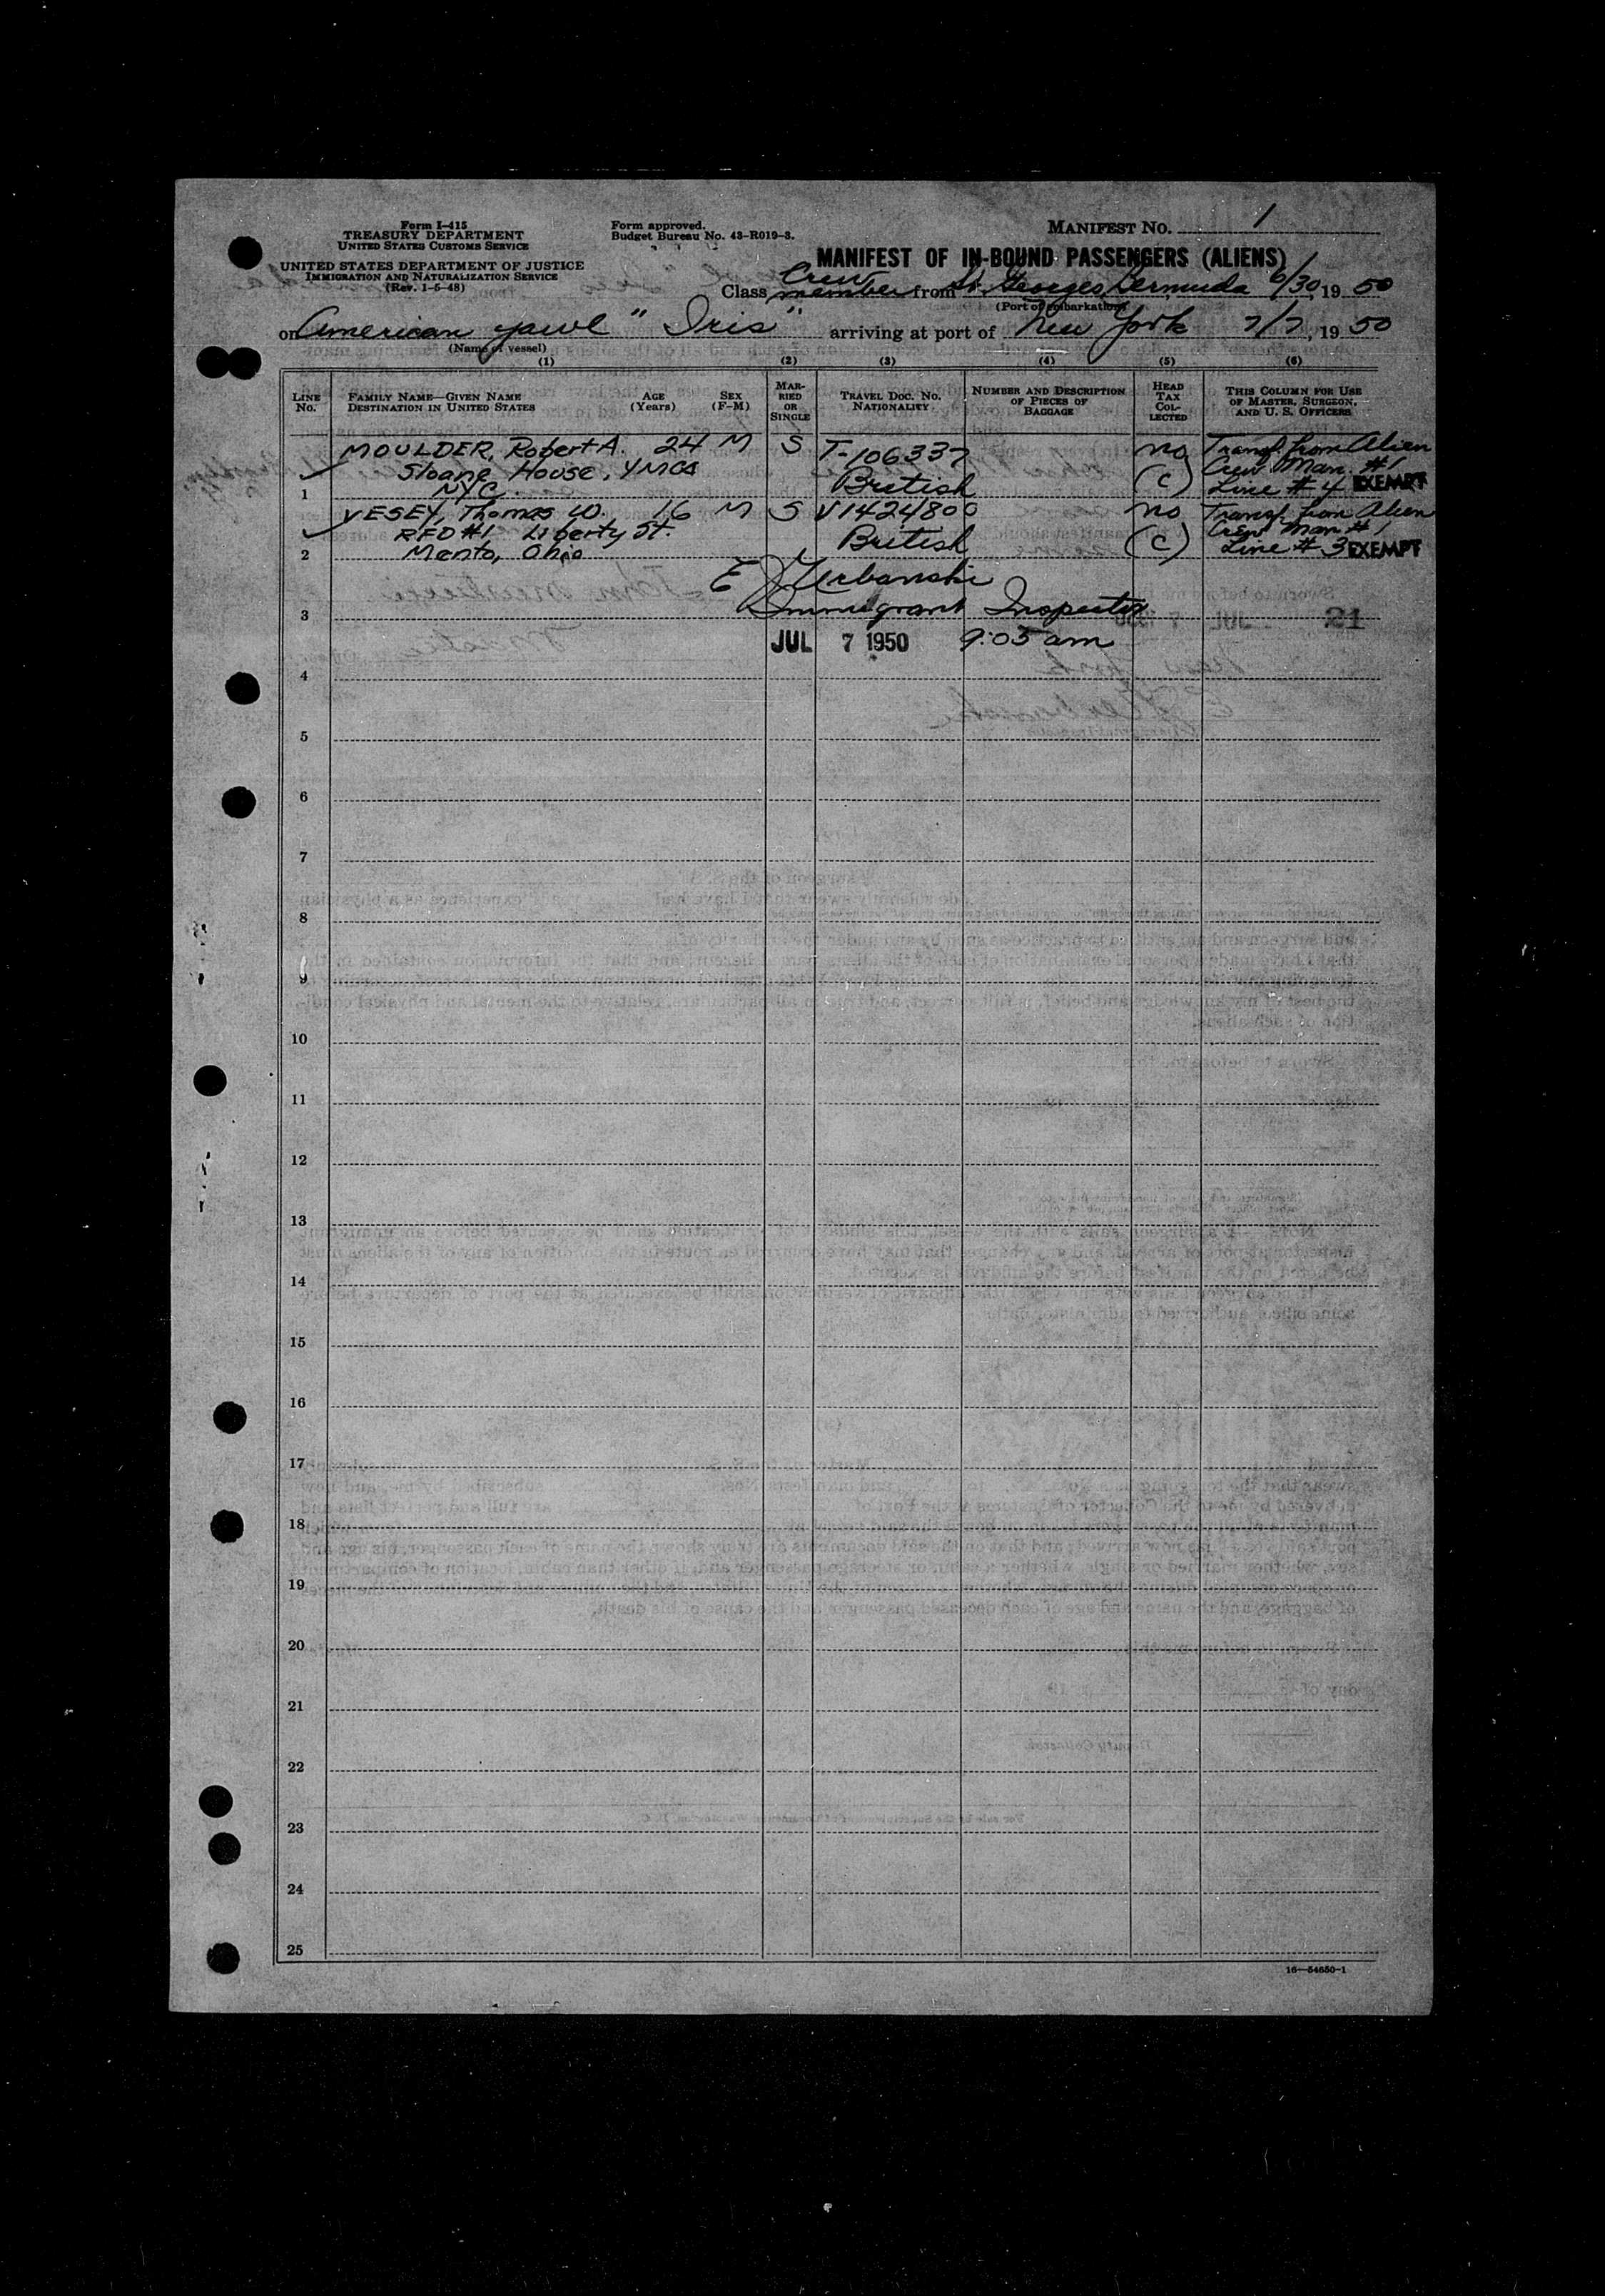 Form I-415
TREASURY DEPARTMENT
UNITED STATES CUSTOMS SERVICE
UNITED STATES DEPARTMENT OF JUSTICE
IMMIGRATION AND NATURALIZATION SERVICE
(Rev. 1-5-48)
Form approved.
Budget Bureau No. 43-R019-3.
MANIFEST NO. 1
MANIFEST OF IN-BOUND PASSENGERS (ALIENS)
Class Crew member from St. Georges, Bermuda 6/30, 19 50
(Port of embarkation)
on American yawl "Iris" arriving at port of New York 7/7, 19 50
(Name of vessel)
(1) (2) (3) (4) (5) (6)
LINE NO. FAMILY NAME—GIVEN NAME DESTINATION IN UNITED STATES AGE (Years) SEX (F-M) MARRIED OR SINGLE TRAVEL DOC. NO. NATIONALITY NUMBER AND DESCRIPTION OF PIECES OF BAGGAGE HEAD TAX COLLECTED THIS COLUMN FOR USE OF MASTER, SURGEON, AND U. S. OFFICERS
MOULDER, Robert A. 24 M S T-106337 no Transf. from Alien
Sloane House, YMCA British (C) Crew Man. #1
1 NYC. Line #4 EXEMPT
VESEY, Thomas W. 16 M S V1424800 no Transf. from Alien
RFD #1 Liberty St. British (C) Crew Man #1
2 Manto, Ohio Line #3 EXEMPT
E J Urbanski
3 Immigrant Inspector
JUL 7 1950 9:05 am
4
5
6
7
8
9
10
11
12
13
14
15
16
17
18
19
20
21
22
23
24
25
16—54650-1